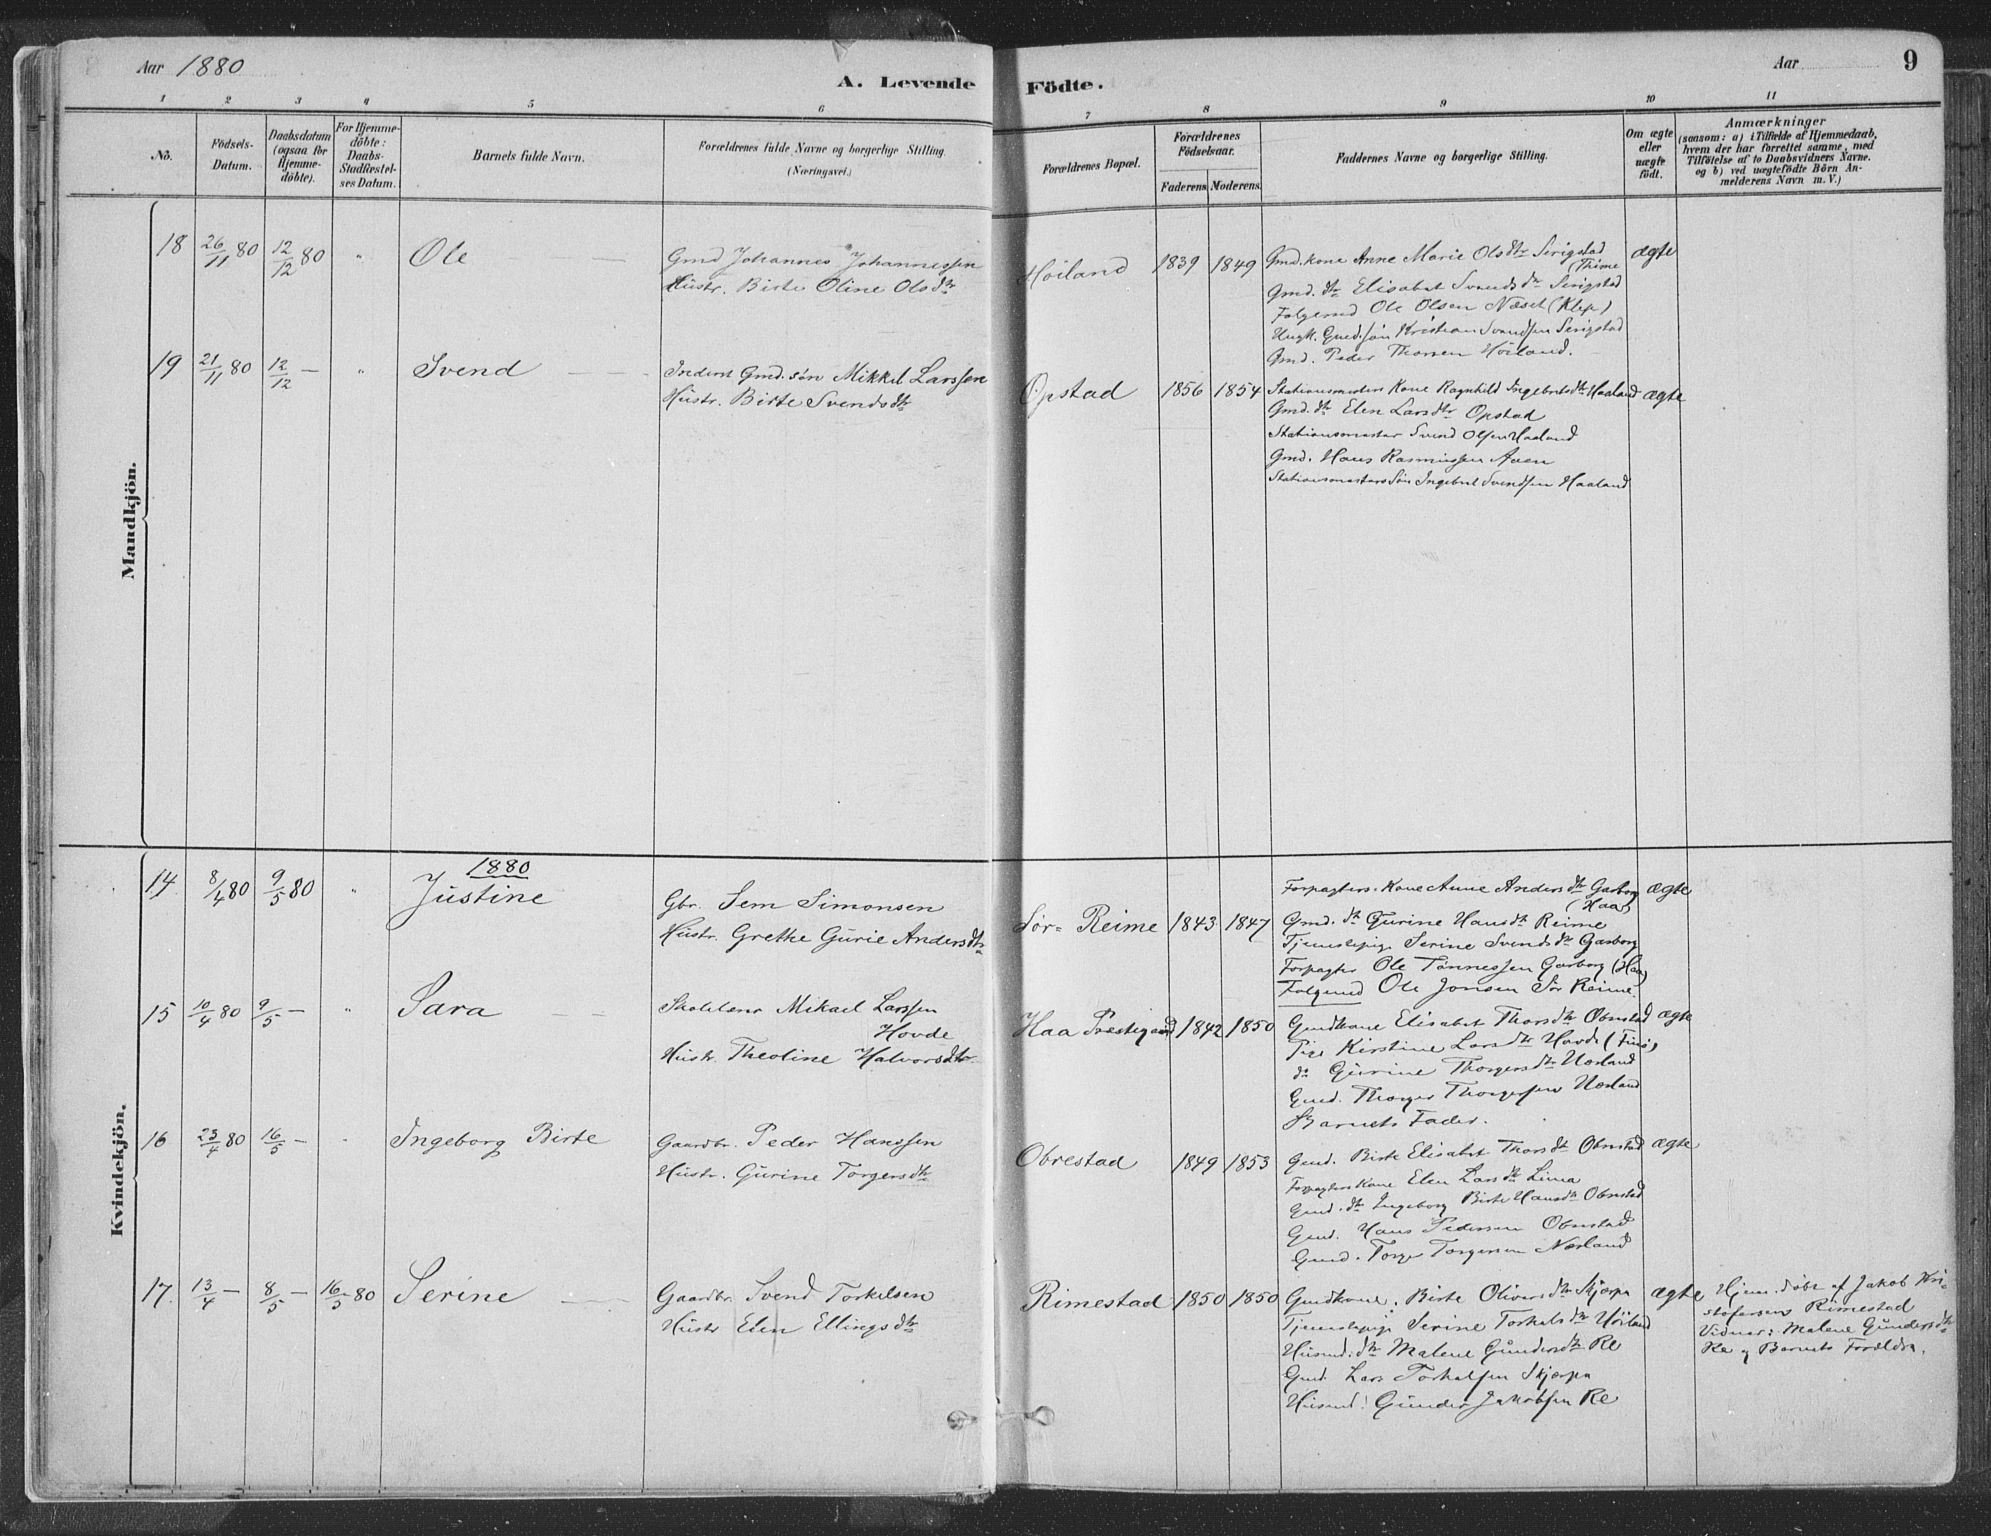 Aar 1880
A. Levende
Födte.
Aar
9
1 2 3 4 5 6 7 8 9 10 11
No.
Födsels-
Datum.
Daabsdatum
(ogsaa for
Hjemme-
döbte).
For Hjemme-
döbte:
Daabs-
Stadfæstel-
ses Datum.
Barnets fulde Navn.
Forældrenes fulde Navne og borgerlige Stilling.
(Næringsvei.)
Forældrenes Bopæl.
Forældrenes
Födselsaar.
Faderens Moderens.
Faddernes Navne og borgerlige Stilling.
Om ægte
eller
uægte
födt.
Anmærkninger
(saasom: a) i Tilfælde af Hjemmedaab,
hvem der har forrettet samme, med
Tilföielse af to Daabsvidners Navne.
og b) ved uægtefödte Börn An-
melderens Navn m. V.)
Mandkjön.
18 26/11 80 12/12 80 " Ole
Gmd Johannes Johannessen
Hustr. Birte Oline Olsdtr
Høiland 1839 1849
Gmd.kone Anne Marie Olsdtr Serigstad
(Thime
Gmd. dtr Elisabet Svendsdtr Serigstad
Ole Olsen Næset (Klep)
Ungk. Gmd.søn Kristian Svendsen Serigstad
Gmd. Peder Thorsen Høiland.
ægte
19 21/11 80 12/12 — " Svend
Inderst Gmd.søn Mikkel Larssen
Hustr. Birte Svendsdtr
Opstad 1856 1854
Stationsmesters Kone Ragnhild Ingebretsdtr Haaland
Gmd. dtr Elen Larsdtr Opstad
Stationsmester Svend Olsen Haaland
Gmd. Hans Rasmussen Aaen
Stationsmesters Søn Ingebret Svendsen Haaland
ægte
Kvindekjön.
1880
14 8/4 80 9/5 80 " Justine
Gbr. Sem Simonsen
Hustr. Grethe Gurie Andersdtr
Sør- Reime 1843 1847
Forpagters. Kone Anne Andersdtr Garborg
(Haa)
Gmd. dtr Gurine Hansdtr Reime
Tjenestepige Serine Svendsdtr Garborg
Forpagter Ole Tønnessen Garborg (Haa)
Ole Jonsen Sør Reime.
ægte
15 10/4 80 9/5 — " Sara
Skolelærer Mikael Larssen
Hovde
Hustr. Theoline Halvorsdtr
Haa Præstegaard 1842 1850
Gmdkone Elisabet Thorsdtr Obrestad
Pige Kirstine Larsdtr Hovde
dtr Gurine Thorgersdtr Nærland
Gmd. Thorger Thorgersen Nærland
Barnets Fader.
ægte
16 23/4 80 16/5 — " Ingeborg Birte
Gaardbr. Peder Hanssen
Hustr. Gurine Torgersdtr
Obrestad 1849 1853
Gmd. Birte Elisabet Thorsdtr Obrestad
Forpagters Kone Elen Larsdtr Lima
Gmd. dtr Ingeborg Birte Hansdtr Obrestad
Gmd. Hans Pedersen Obrestad
Gmd. Torger Torgersen Nærland
ægte
17. 13/4 — 8/5 — 16/5 80 Serine
Gaardbr. Svend Torkelsen
Hustr Elen Ellingsdtr
Rimestad 1850 1850
Gmdkone. Birte Oliversdtr Skjærpe
Tjenestepige Serine Torkelsdtr Høiland
Husmd. dtr Malene Gundersdtr Re
Gmd. Lars Torkelsen Skjærpe
Husmd. Gunder Jakobsen Re
ægte
Hjem. døbt af Jakob Kri-
stofersens Rimestad
Vidner: Malene Gundersdtr
Re og Barnets Forældre.